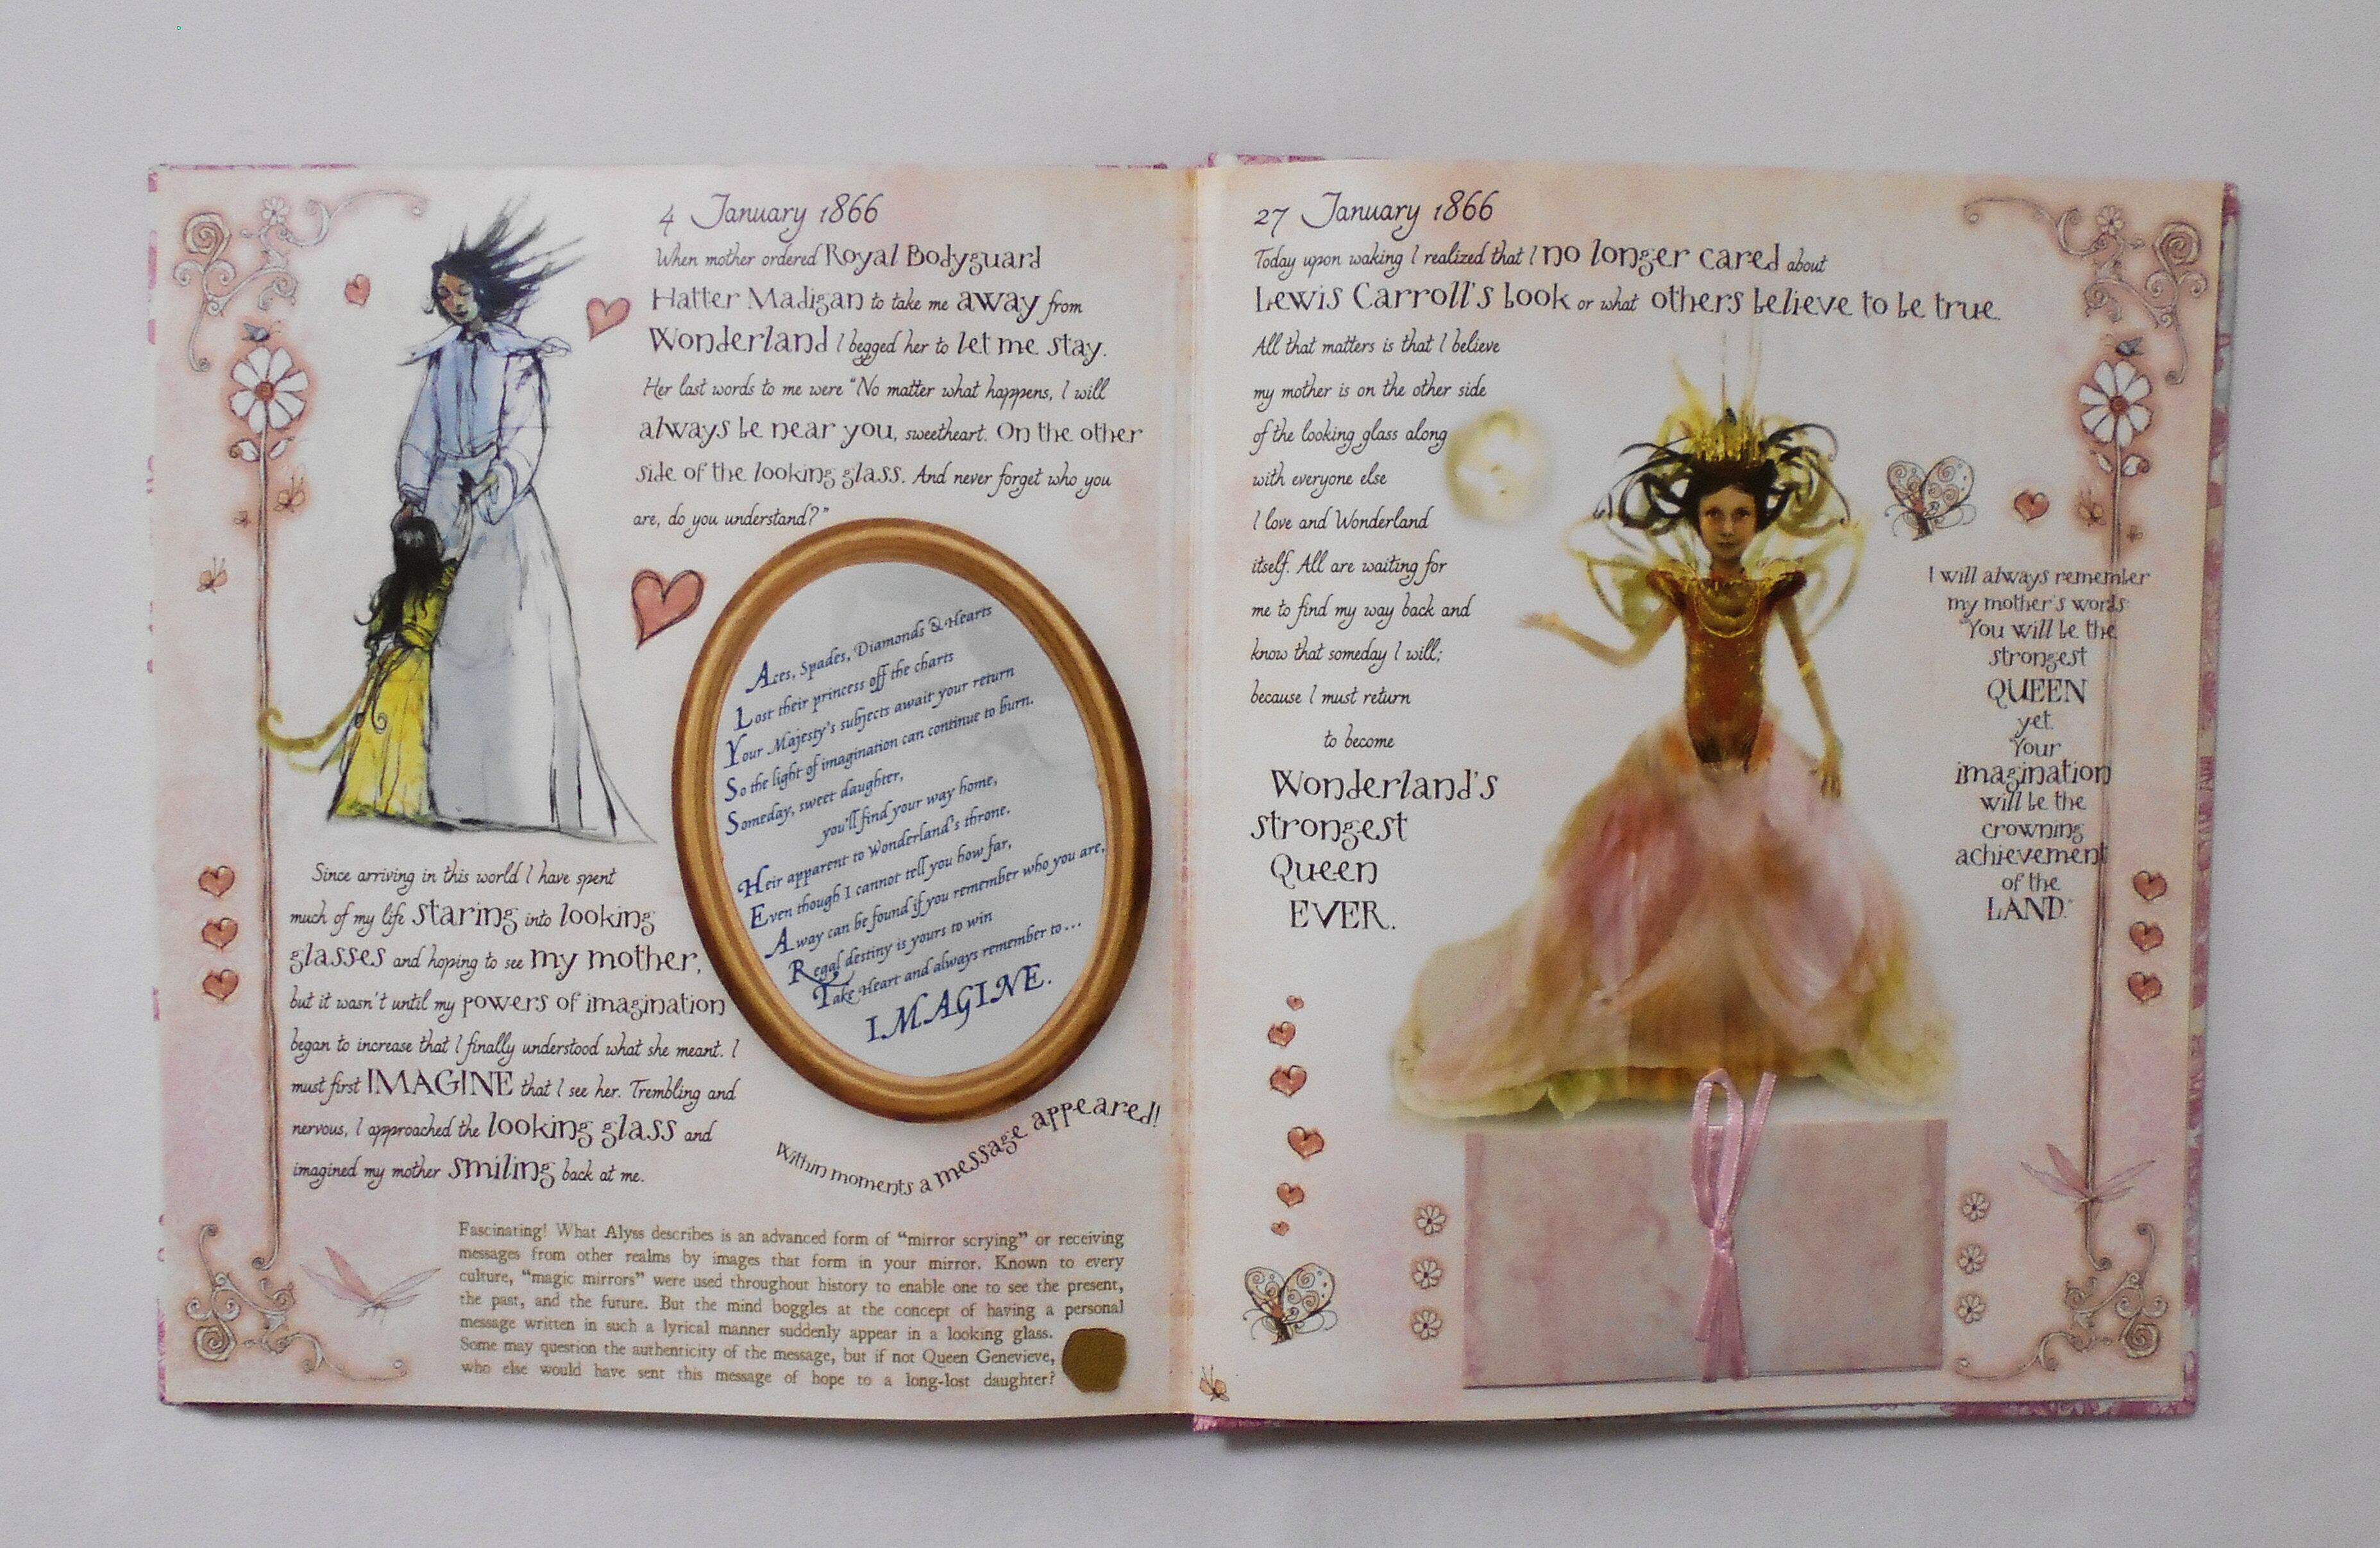 4 January 1866
When mother ordered Royal Bodyguard
Hatter Madigan to take me away from
Wonderland I begged her to let me stay.
Her last words to me were "No matter what happens, I will
always be near you, sweetheart. On the other
side of the looking glass. And never forget who you
are, do you understand?"
Aces, Spades, Diamonds & Hearts
Lost their princess off the charts
Your Majesty's subjects await your return
So the light of imagination can continue to burn.
Someday, sweet daughter,
you'll find your way home,
Heir apparent to Wonderland's throne.
Even though I cannot tell you how far,
A way can be found if you remember who you are,
Regal destiny is yours to win
Take Heart and always remember to...
IMAGINE.
Since arriving in this world I have spent
much of my life staring into looking
glasses and hoping to see my mother,
but it wasn't until my powers of imagination
began to increase that I finally understood what she meant. I
must first IMAGINE that I see her. Trembling and
nervous, I approached the looking glass and
imagined my mother smiling back at me.
Within moments a message appeared!
Fascinating! What Alyss describes is an advanced form of "mirror scrying" or receiving
messages from other realms by images that form in your mirror. Known to every
culture, "magic mirrors" were used throughout history to enable one to see the present,
the past, and the future. But the mind boggles at the concept of having a personal
message written in such a lyrical manner suddenly appear in a looking glass.
Some may question the authenticity of the message, but if not Queen Genevieve,
who else would have sent this message of hope to a long-lost daughter?
27 January 1866
Today upon waking I realized that I no longer cared about
Lewis Carroll's book or what others believe to be true.
All that matters is that I believe
my mother is on the other side
of the looking glass along
with everyone else
I love and Wonderland
itself. All are waiting for
me to find my way back and
know that someday I will;
because I must return
to become
Wonderland's
strongest
Queen
EVER.
I will always remember
my mother's words
"You will be the
strongest
QUEEN
yet.
Your
imagination
will be the
crowning
achievement
of the
LAND."